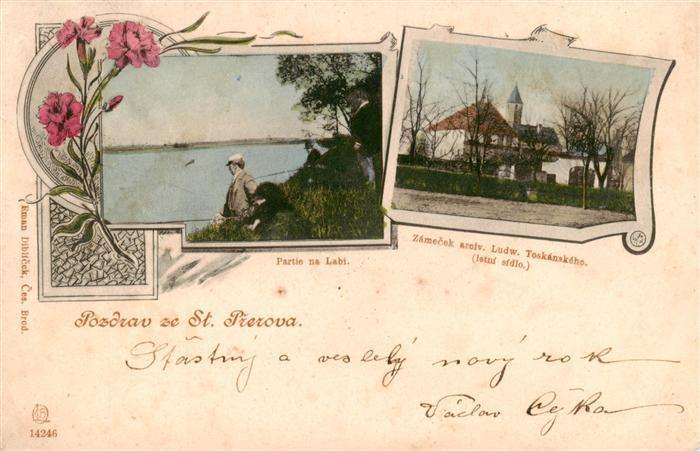 Partie na Labi.
Zámeček arciv. Ludw. Toskánského.
(letní sídlo.)
Pozdrav ze St. Přerova.
Šťastný a veselý nový rok
Václav
Diblíček, Čes. Brod.
14246